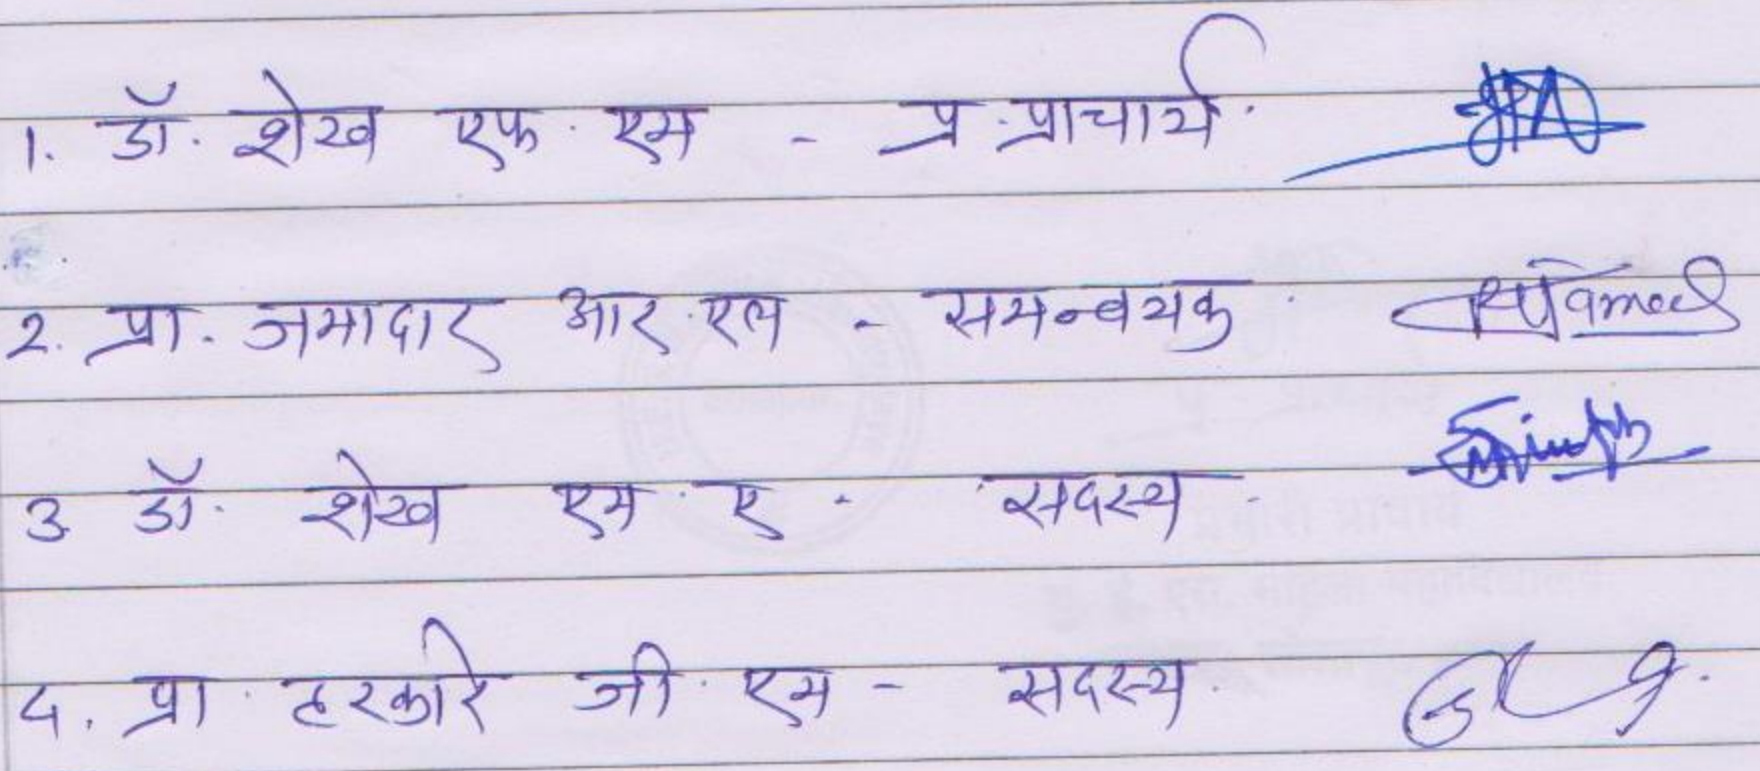 1. डॉ. शेख एफ. एम - प्र. प्राचार्य.
2. प्रा. जमादार आर. एल - समन्वयक.
3 डॉ. शेख एम. ए - सदस्य -
4. प्रा. हरकारे जी. एम - सदस्य.